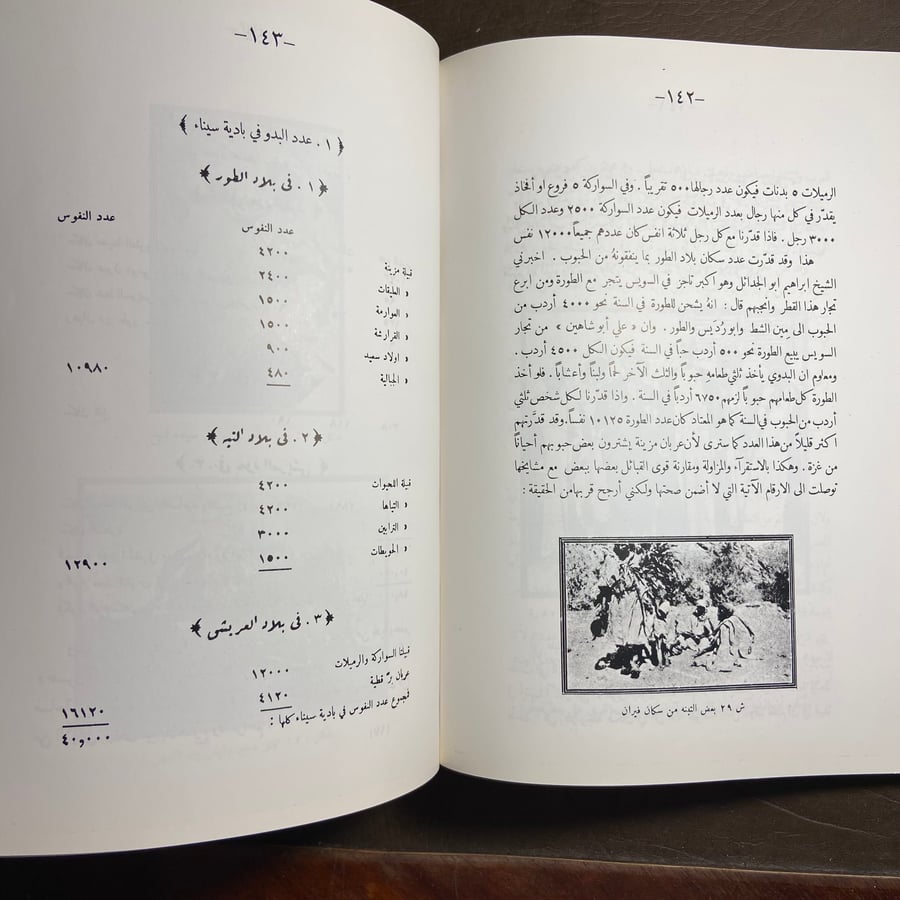 -١٤٢-
الرميلات ٥ بدنات فيكون عدد رجالها ٥٠٠ تقريباً . وفي السواركة ٥ فروع او أفخاذ
يقدّر في كل منها رجال بعدد الرميلات فيكون عدد السواركة ٢٥٠٠ وعدد الكل
٣٠٠٠ رجل . فاذا قدّرنا مع كل رجل ثلاثة انفس كان عددهم جميعاً ١٢٠٠٠ نفس
هذا وقد قدّرت عدد سكان بلاد الطور بما ينفقونهُ من الحبوب . اخبرني
الشيخ ابراهيم ابو الجدائل وهو اكبر تاجر في السويس يتجر مع الطورة ومن ابرع
تجار هذا القطر وانجبهم قال : انهُ يشحن للطورة في السنة نحو ٤٠٠٠ أردب من
الحبوب الى مين الشط وابورُدَيس والطور . وان « علي أبو شاهين » من تجار
السويس يبيع الطورة نحو ٥٠٠ أردب حباً في السنة فيكون الكل ٤٥٠٠ أردب .
ومعلوم ان البدوي يأخذ ثلثي طعامهِ حبوباً والثلث الآخر لحماً ولبناً وأعشاباً . فلو أخذ
الطورة كل طعامهم حبوباً لزمهم ٦٧٥٠ أردباً في السنة . واذا قدّرنا لكل شخص ثلثي
أردب من الحبوب في السنة كما هو المعتاد كان عدد الطورة ١٠١٢٥ نفساً . وقد قدّرتهم
أكثر قليلاً من هذا العدد كما سترى لأن عربان مزينة يشترون بعض حبوبهم أحياناً
من غزة . وهكذا بالاستقرآء والمزاولة ومقارنة قوى القبائل بعضها ببعض مع مشايخها
توصلت الى الارقام الآتية التي لا أضمن صحتها ولكني أرجح قربها من الحقيقة :
ش ٢٩ بعض التبنه من سكان فيران
-١٤٣-
﴿ ١ . عدد البدو في بادية سيناء ﴾
﴿ ١ . في بلاد الطور ﴾
عدد النفوس عدد النفوس
قبيلة مزينة ٤٢٠٠
« العليقات ٢٤٠٠
« العوارمة ١٥٠٠
« القرارشة ١٥٠٠
« اولاد سعيد ٩٠٠
« الجبالية ٤٨٠ ١٠٩٨٠
﴿ ٢ . في بلاد التيه ﴾
قبيلة اللحيوات ٤٢٠٠
« التياها ٤٢٠٠
« الترابين ٣٠٠٠
« الحويطات ١٥٠٠ ١٢٩٠٠
﴿ ٣ . في بلاد العريش ﴾
قبيلتا السواركة والرميلات ١٢٠٠٠
عربان برّ قطية ٤١٢٠ ١٦١٢٠
فمجموع عدد النفوس في بادية سيناء كلها : ٤٠,٠٠٠